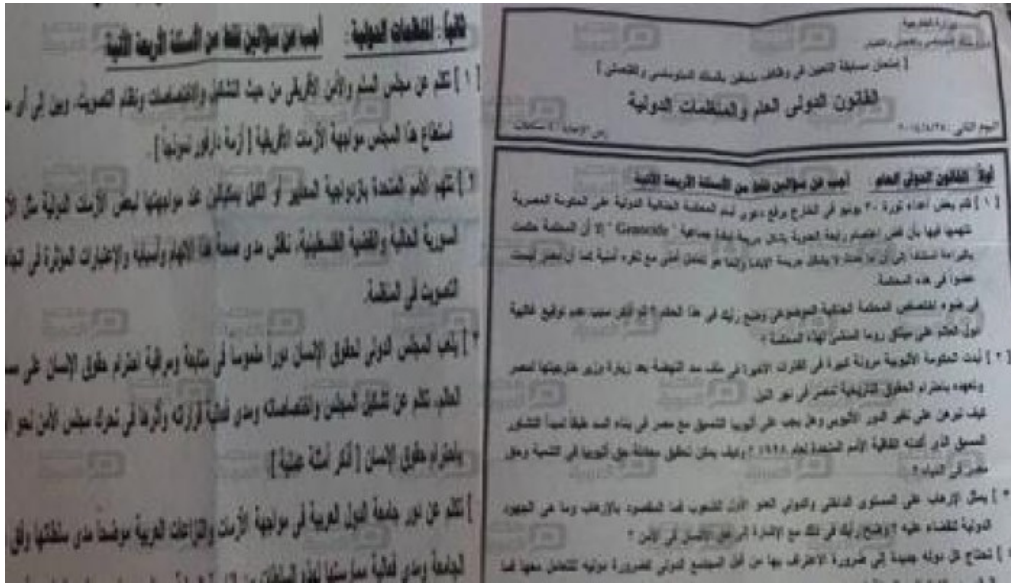 وزارة الخارجية
[ امتحان مسابقة التعيين في وظائف ملحقين بالسلك الدبلوماسي والقنصلي ]
القانون الدولى العام والمنظمات الدولية
اليوم الثانى:
زمن الإجابة: ٤ ساعات
أولاً: القانون الدولى العام أجب عن سؤالين فقط من الأسئلة الأربعة الآتية
[ ١ ] قام بعض أعداء ثورة ٣٠ يونيو فى الخارج برفع دعوى أمام المحكمة الجنائية الدولية على الحكومة المصرية
تتهمها فيها بأن فض اعتصام رابعة العدوية يشكل جريمة إبادة جماعية " Genocide " إلا أن المحكمة حكمت
بالبراءة استناداً إلى أن ما حدث لا يشكل جريمة الإبادة وإنما هو تعامل أمنى مع ثغره أمنية كما أن مصر ليست
عضواً فى هذه المحكمة.
فى ضوء اختصاص المحكمة الجنائية الموضوعى وضح رأيك فى هذا الحكم ؟ ثم أذكر سبب عدم توقيع غالبية
دول العالم على ميثاق روما المنشئ لهذه المحكمة ؟
[ ٢ ] أبدت الحكومة الأثيوبية مرونة كبيرة فى الفترات الأخيرة فى ملف سد النهضة بعد زيارة وزير خارجيتها لمصر
وتعهده باحترام الحقوق التاريخية لمصر فى نهر النيل
كيف تبرهن على تغير الدور الأثيوبى وهل يجب على أثيوبيا التنسيق مع مصر فى بناء السد طبقاً لمبدأ التشاور
المسبق الذى أكدته اتفاقية الأمم المتحدة لعام ؟ وكيف يمكن تحقيق معادلة حق أثيوبيا فى التنمية وحق
مصر فى المياه ؟
[ ٣ ] يمثل الإرهاب على المستوى الداخلى والدولى العدو الأول للشعوب فما المقصود بالإرهاب وما هى الجهود
الدولية للقضاء عليه ؟ وضح رأيك فى ذلك مع الإشارة إلى حق الإنسان فى الأمن ؟
[ ٤ ] تحتاج كل دولة جديدة إلى ضرورة الاعتراف بها من قبل المجتمع الدولى كضرورة دولية للتعامل معها فما
ثانياً: المنظمات الدولية : أجب عن سؤالين فقط من الأسئلة الأربعة الآتية
[ ١ ] تكلم عن مجلس السلم والأمن الأفريقى من حيث التشكيل والاختصاصات ونظام التصويت، وبين إلى أى
استطاع هذا المجلس مواجهة الأزمات الأفريقية [ أزمة دارفور نموذجاً ] .
[ ٢ ] تتهم الأمم المتحدة بازدواجية المعايير أو الكيل بمكيالين عند مواجهتها لبعض الأزمات الدولية مثل
السورية الحالية والقضية الفلسطينية، ناقش مدى صحة هذا الاتهام وأسبابه والإعتبارات المؤثرة فى
التصويت فى المنظمة.
[ ٣ ] يلعب المجلس الدولى لحقوق الإنسان دوراً ملموساً فى متابعة ومراقبة احترام حقوق الإنسان على
العالم، تكلم عن تشكيل المجلس واختصاصاته ومدى فعالية قراراته وأثرها فى تحرك مجلس الأمن نحو
باحترام حقوق الإنسان [ أذكر أمثلة عملية ].
[ ٤ ] تكلم عن دور جامعة الدول العربية فى مواجهة الأزمات والنزاعات العربية موضحاً مدى سلطاتها وفق
الجامعة ومدى فعالية ممارستها لهذه السلطات